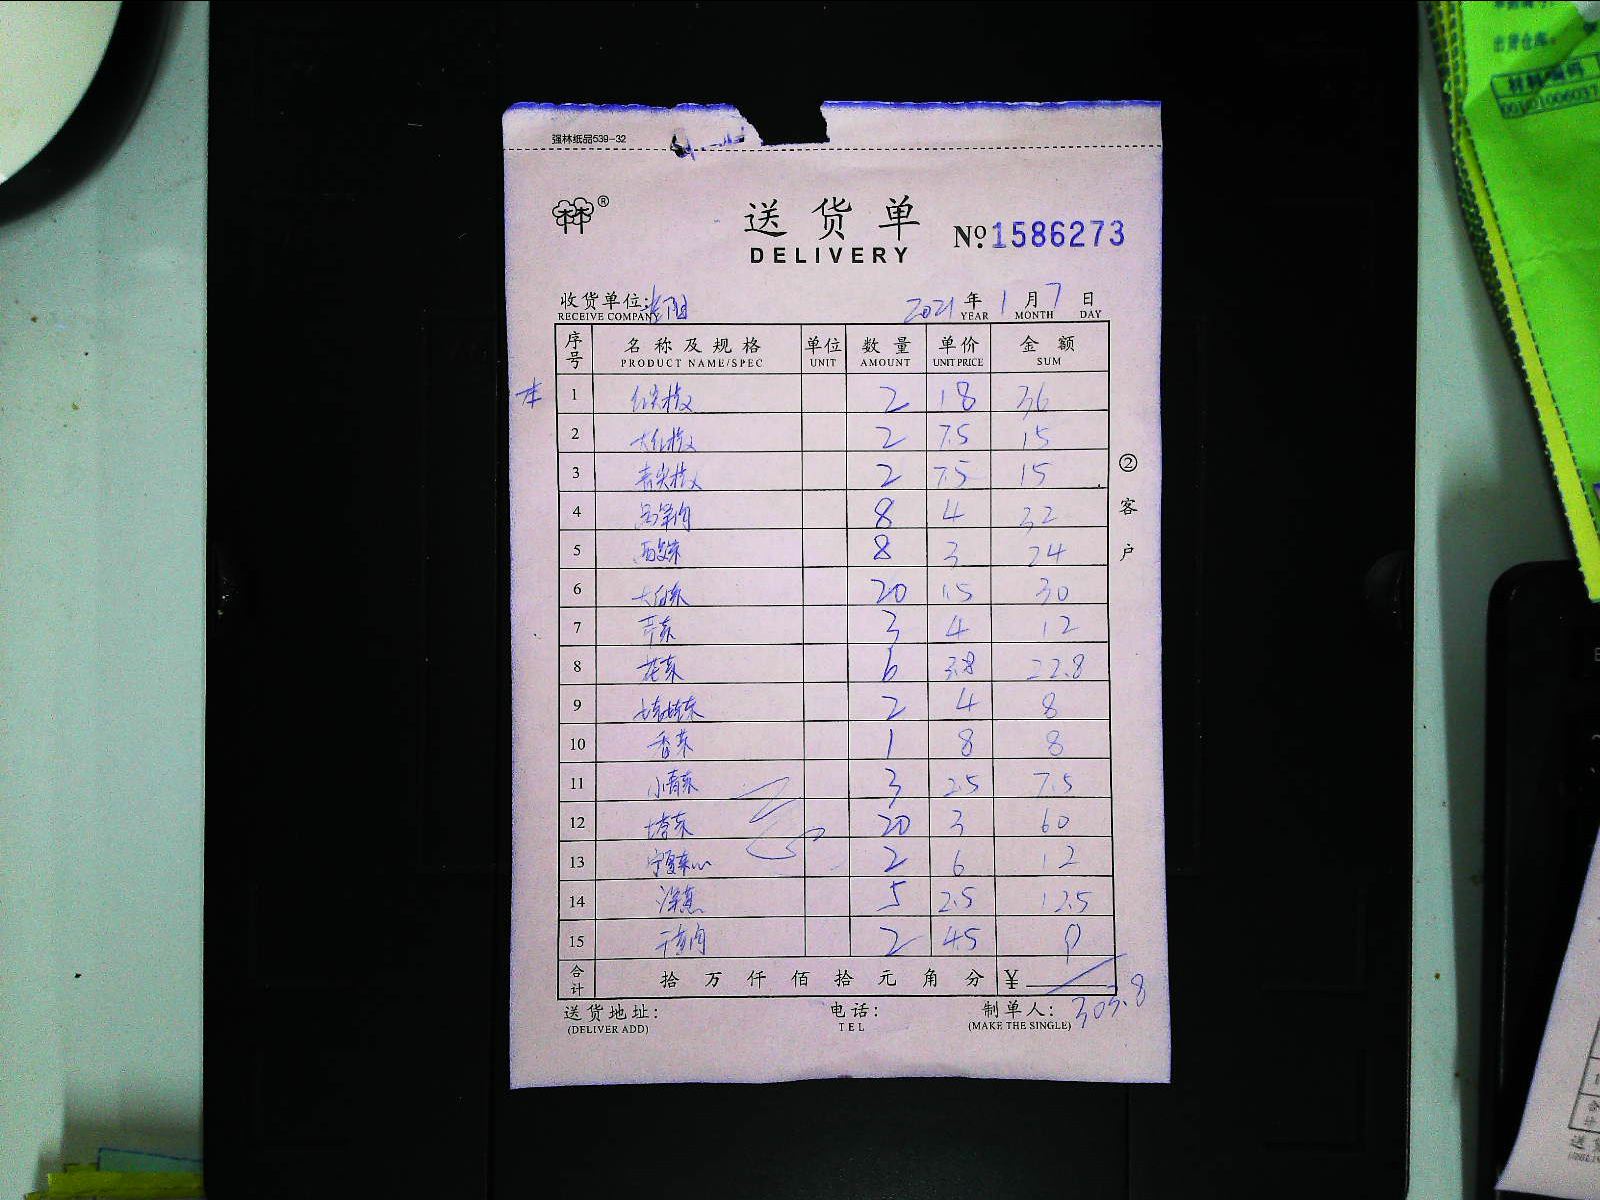 强林纸品539-32
送货单
DELIVERY
№ 1586273
收货单位:
RECEIVE COMPANY
2021 年 1 月 7 日
YEAR MONTH DAY
序号 名称及规格 单位 数量 单价 金额
PRODUCT NAME/SPEC UNIT AMOUNT UNIT PRICE SUM
1 红尖椒 2 18 36
2 大红椒 2 7.5 15
3 青尖椒 2 7.5 15
4 8 4 32
5 酸菜 8 3 24
6 大白菜 20 1.5 30
7 芹菜 3 4 12
8 花菜 6 3.8 22.8
9 娃娃菜 2 4 8
10 香菜 1 8 8
11 小青菜 3 2.5 7.5
12 20 3 60
13 宁夏菜心 2 6 12
14 5 2.5 12.5
15 2 4.5 9
合计 拾 万 仟 佰 拾 元 角 分 ¥
303.8
送货地址: 电话: 制单人:
(DELIVER ADD) TEL (MAKE THE SINGLE)
②客户
出货仓库:
材料编码